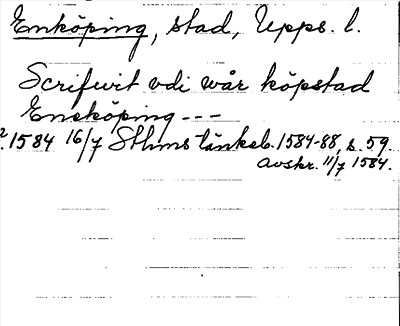 Enköping, stad, Upps. l.
Scrifwit vdi wår köpstad
Eneköping ---
1584 16/7 Sthms tänkeb. 1584-88, s. 59.
Avskr. 11/7 1584.